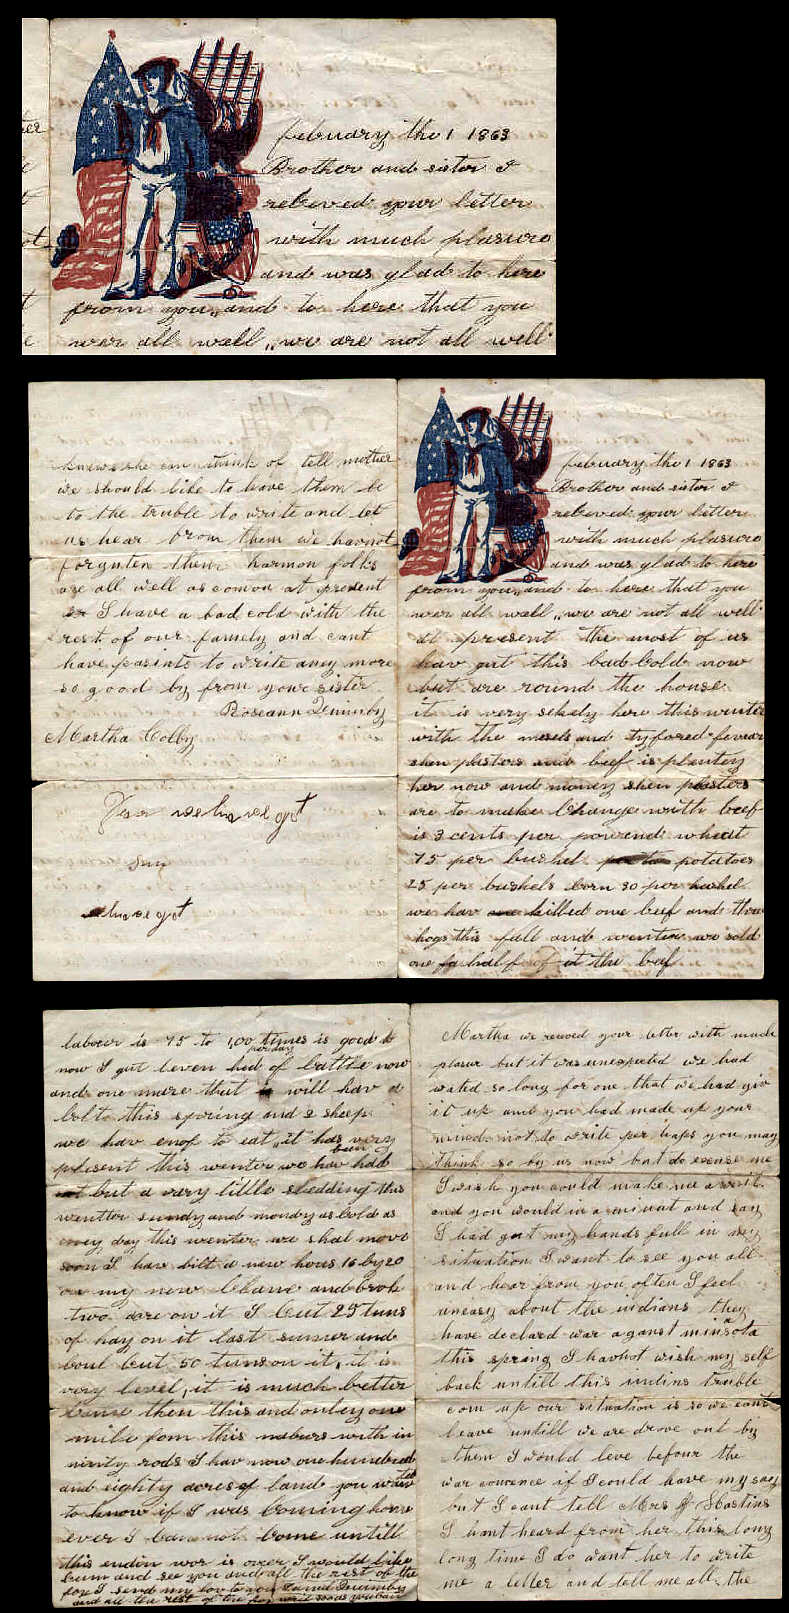 february the 1 1863
Brother and sister I
receved your letter
with much plasure
and was glad to here
from you,, and to here that you
wer all wall,, we are not all well
knews she can think of tell mother
we should like to have them be
to the truble to write and let
us hear from them we havnot
forguten them harmon folks
are all well as comon at present
I have a bad cold with the
rest of our famely and cant
have pasints to write aney more
so good by from your sister
Roseann
Martha Colby
we have got
have got
february the 1 1863
Brother and sister I
receved your letter
with much plasure
and was glad to here
from you,, and to here that you
wer all wall,, we are not all well
at present the most of us
hav gut this bad Cold now
but are round the house
it is very sekely here this winter
with the mesels and tyfored fevear
shen plasters and beef is plantey
her now and money shen plasters
are to make Change with beef
is 3 cents per powend wheat
75 per bushel potatoes
25 per bushels corn 30 per bushel
we hav killed one beef and thre
hogs this fall and wenter we sold
one the beef
labour is 75 to 1,00 times is good it
per day
now I gut leven hed of cattle now
and one mare that will hav a
Colt this spring and 2 sheep
we hav enof to eat,, it has very
been
plesent this wenter we hav had
but a vary little sledding this
wentter sundy and mondy as Cold as
eney day this wenter we shal move
soon I hav bilt a new hous 16 by 20
on my new Clame and broke
two acre on it I Cut 25 tuns
of hay on it last sumer and
Coul Cut 50 tuns on it, it is
very level, it is much better
Clame then this and onley one
mile fom this naburs with in
ninty rods I hav now one hundred
and eighty acres of land you
to know if I was Coming home
ever I Can not Come untill
this endin wor is over I would like
Cum and see you and all the rest of the
I send my lov to you
and all the rest of the
Martha we receved your letter with much
plasur but it was unexpected we had
wated so long for one that we had giv
it up and you had made up your
mind not to write per haps you may
think so by us now but do excuse me
I wish you could make me a visit
and you would in a minuat and say
I had gut my hands full in my
situation I want to see you all
and hear from you often I feel
uneasy about the indians they
have declard war aganst minsota
this spring I havnot wish my self
back untill this indins truble
com up our situation is so we cant
leave untill we are drove out by
them I would leve befour the
war comence if I could have my say
but I cant tell Mrs J Hoskins
I hant heard from her this long
long time I do want her to write
me a letter and tell me all the